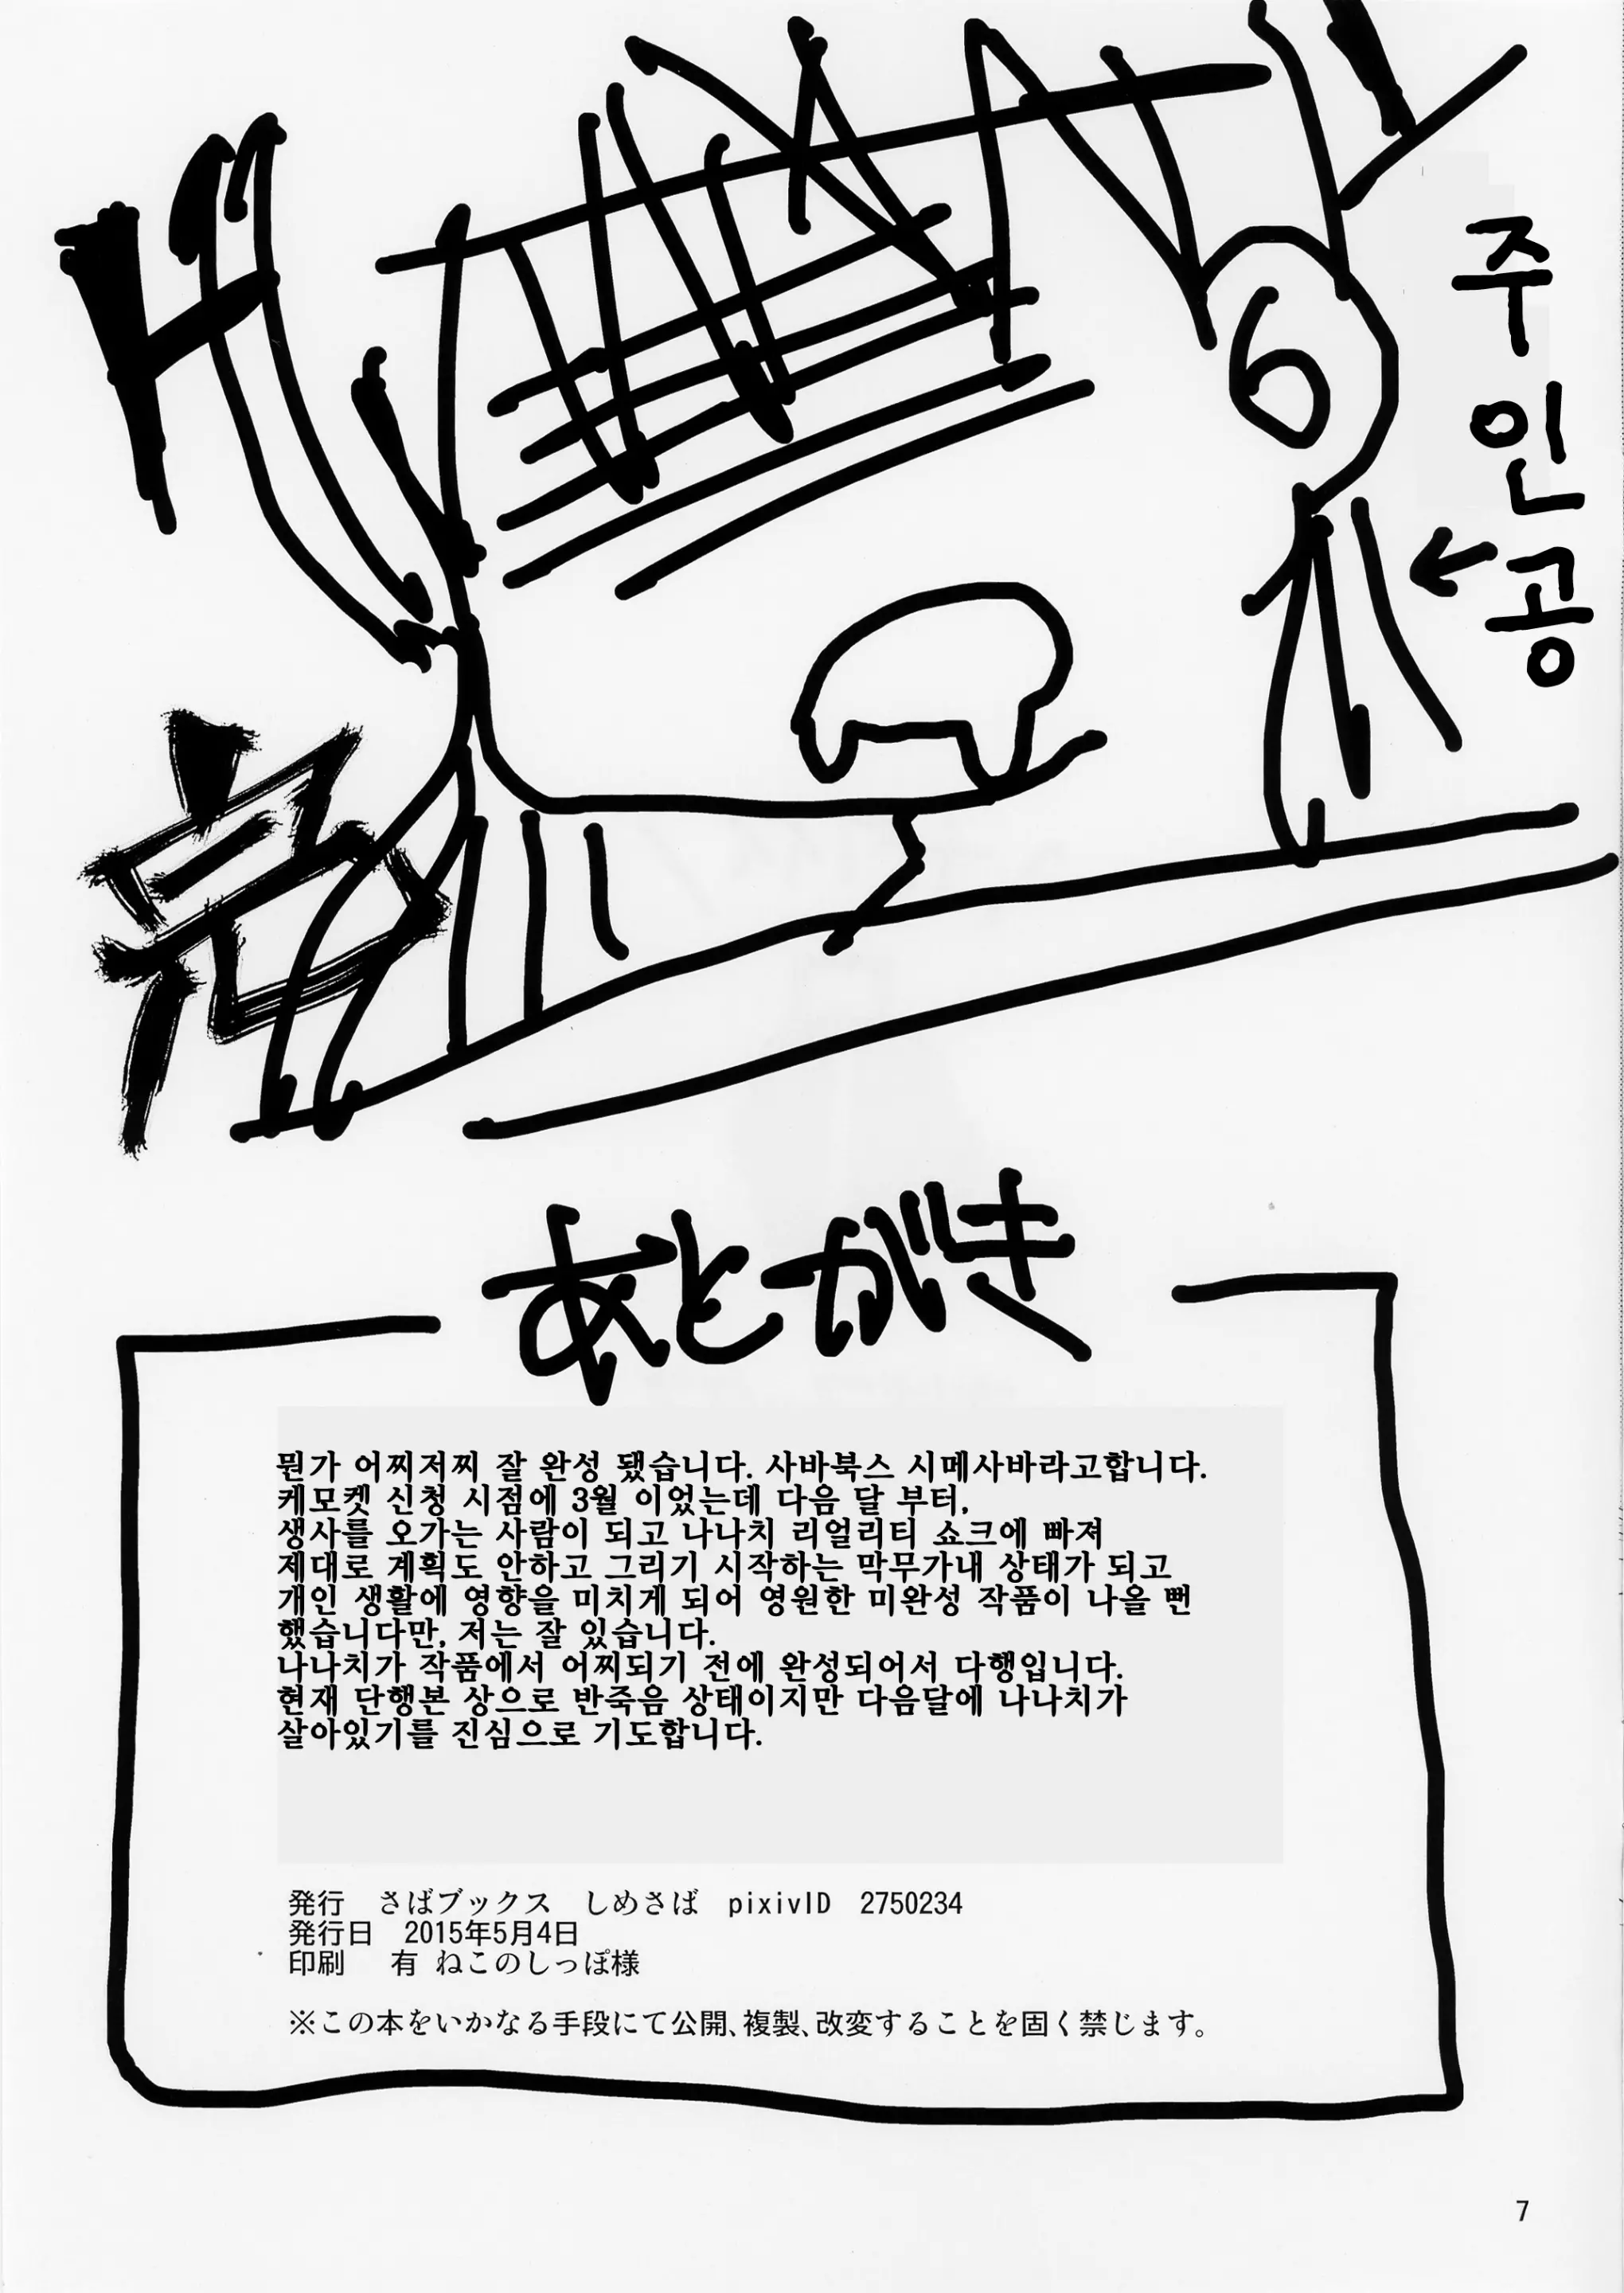 주인공
あとがき
뭔가 어찌저찌 잘 완성 됐습니다. 사바북스 시메사바라고합니다.
케모켓 신청 시점에 3월 이었는데 다음 달 부터,
생사를 오가는 사람이 되고 나나치 리얼리티 쇼크에 빠져
제대로 계획도 안하고 그리기 시작하는 막무가내 상태가 되고
개인 생활에 영향을 미치게 되어 영원한 미완성 작품이 나올 뻔
했습니다만, 저는 잘 있습니다.
나나치가 작품에서 어찌되기 전에 완성되어서 다행입니다.
현재 단행본 상으로 반죽음 상태이지만 다음달에 나나치가
살아있기를 진심으로 기도합니다.
発行 さばブックス しめさば pixivID 2750234
発行日 2015年5月4日
印刷 有 ねこのしっぽ様
※この本をいかなる手段にて公開、複製、改変することを固く禁じます。
7